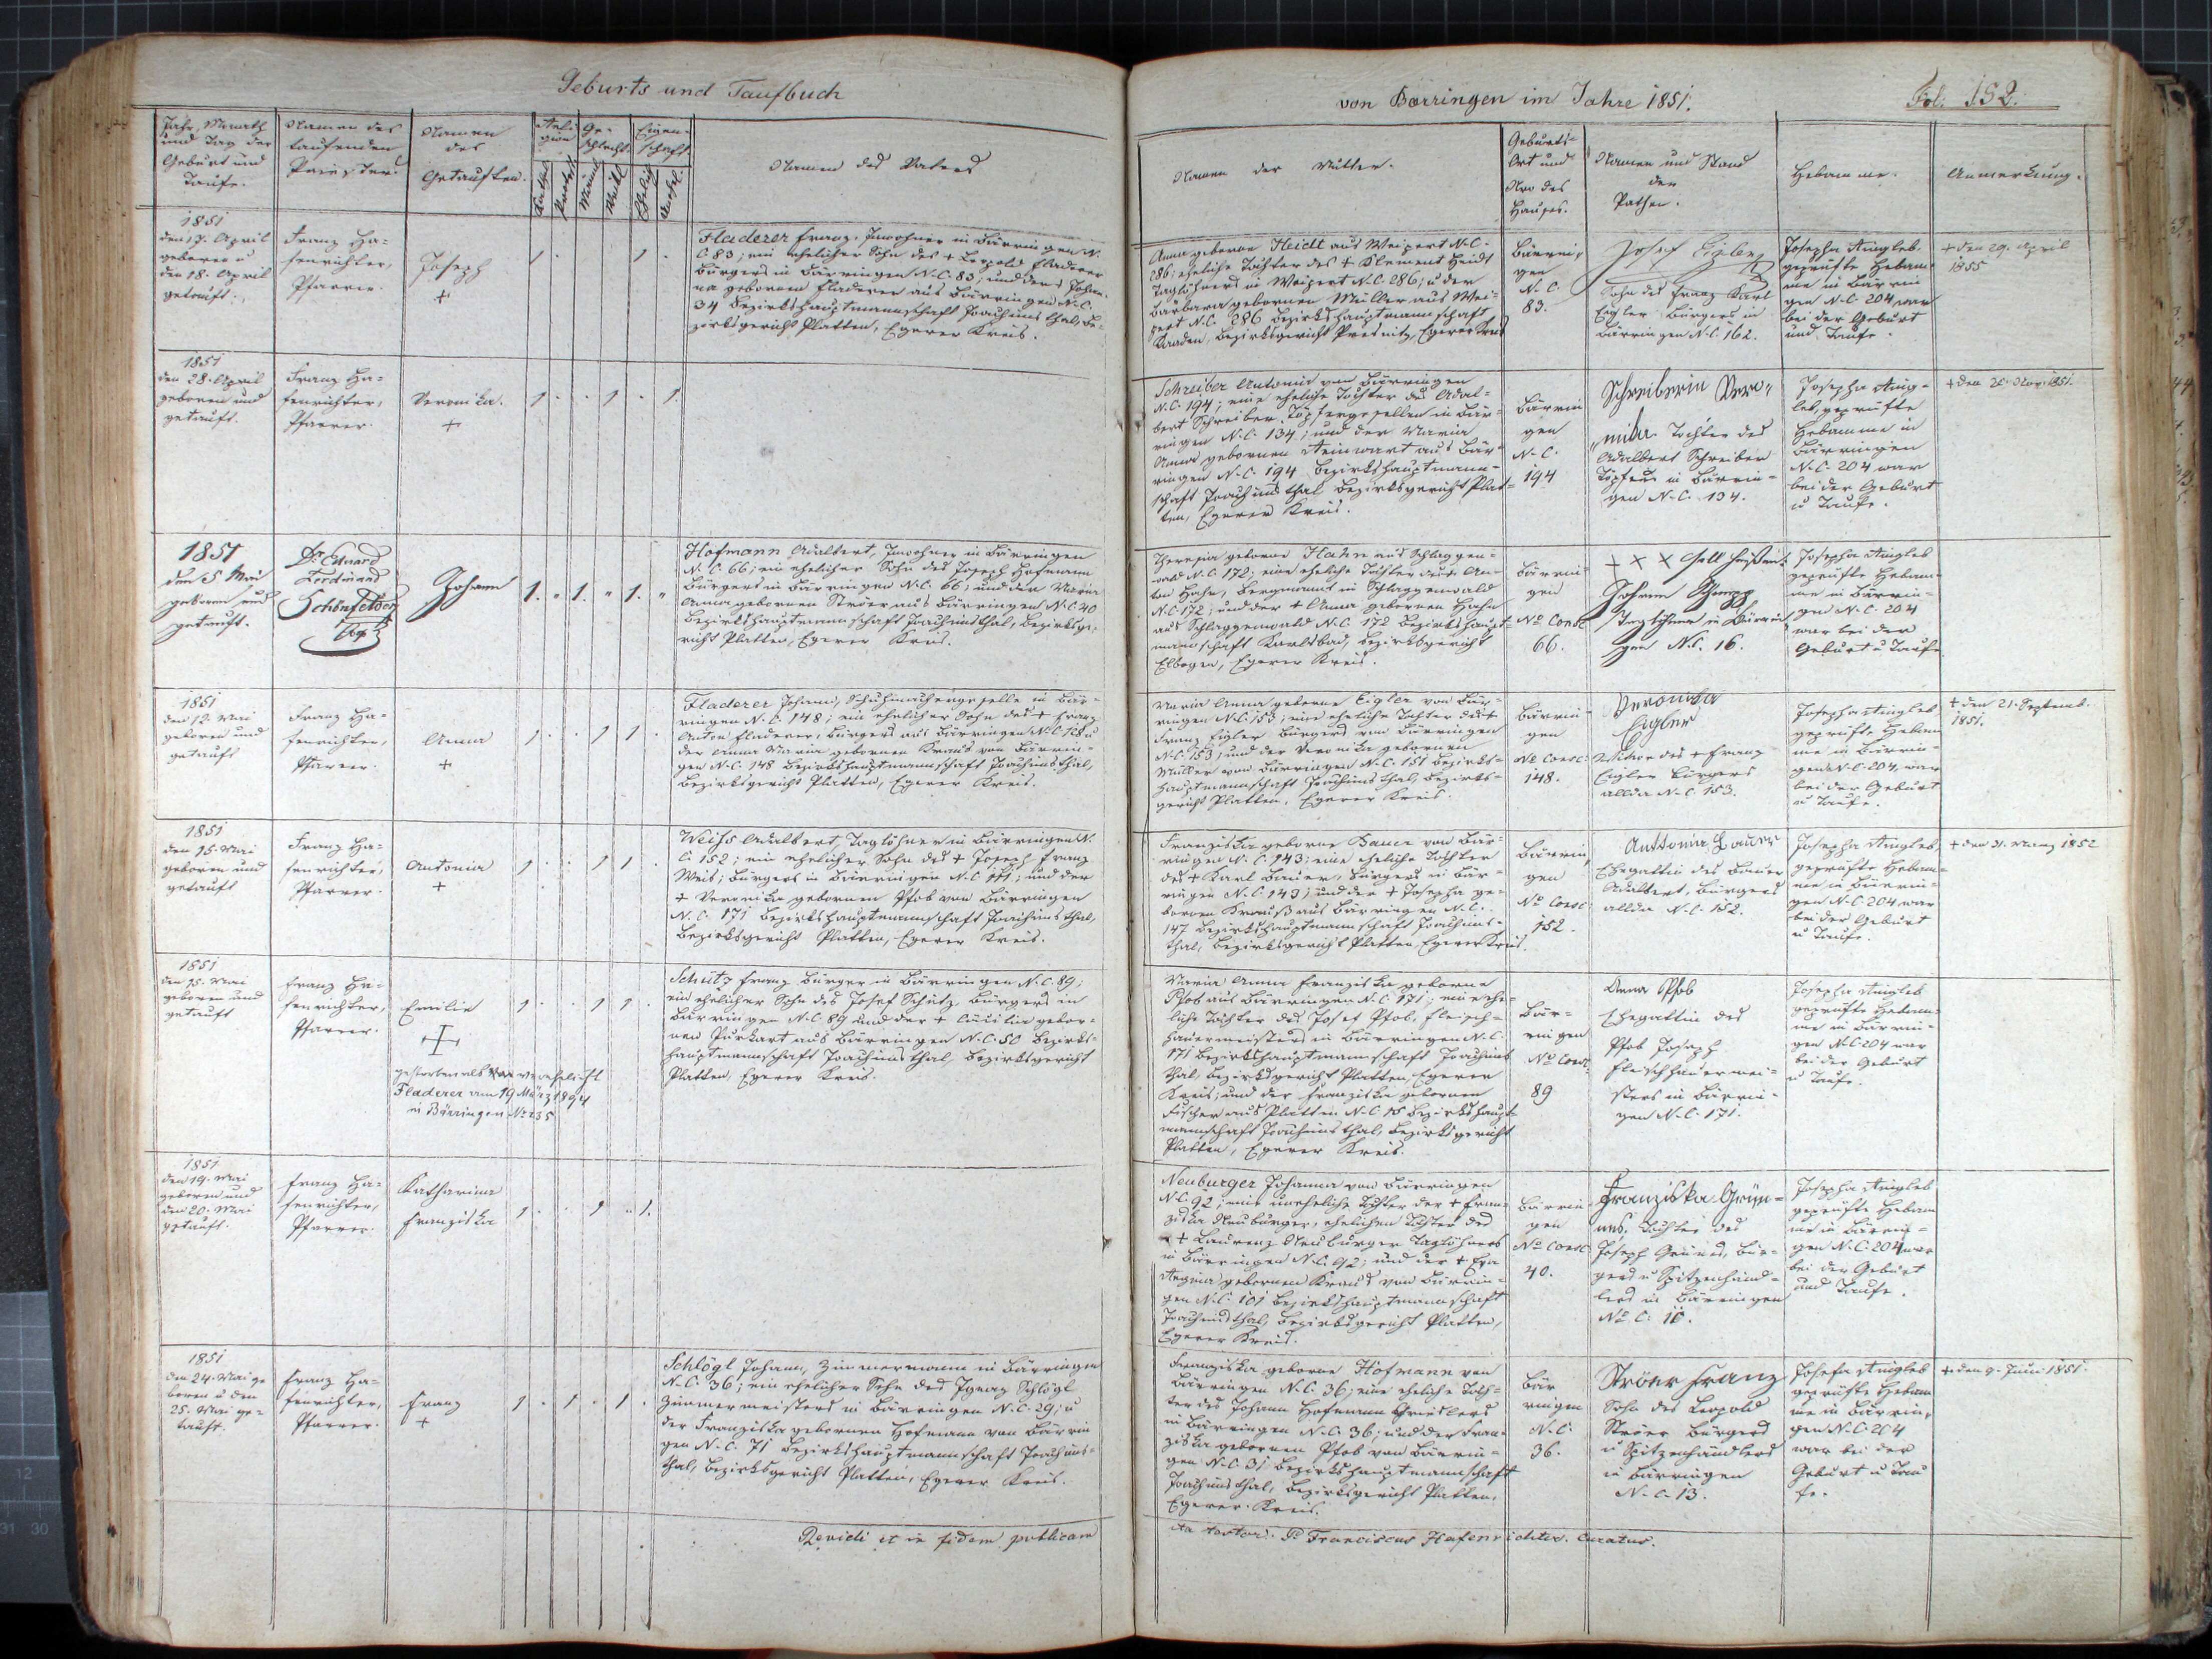 Geburts und Taufbuch
von Bærringen im Jahre 1851.
Fol. 152.
Jahr, Monath
und Tag der
Geburt und
Taufe.
Namen des
taufenden
Priesters.
Namen
des
Getauften.
Reli-
gion
Ge-
schlecht.
Eigen-
schaft.
Namen des Vaters
Namen der Mutter.
Geburts-
Ort und
Nro des
Hauses.
Namen und Stand
der
Pathen.
Hebamme.
Anmerkung.
1851
den 17. April
geboren u
den 18. April
getauft.
Franz Ha-
fenrichter,
Pfarrer.
Joseph
+
Fladerer Franz, Inwohner in Bärringen N.
C. 83; ein ehelicher Sohn des + Leopold Fladerer
Bürgers in Bärringen N.C. 83, und der + Johan-
na geborenen Fladerer aus Bärringen N.C.
34 Bezirkshauptmannschaft Joachimsthal, Be-
zirksgericht Platten, Egerer Kreis.
Anna geborne Heidt aus Weipert N.C.
286; eheliche Tochter des + Klement Heidt
Taglöhners in Weipert N.C. 286; u der
Barbara gebornen Müller aus Wei-
pert N.C. 286 Bezirkshauptmannschaft
Kaaden, Bezirksgericht Presnitz, Egerer Kreis
Bärrin-
gen
N.C.
83.
Josef Eigler
Sohn des Franz Karl
Eigler Bürgers in
Bärringen N.C. 162.
Josepha Ringleb
geprüfte Hebam-
me in Bärrin
gen N.C. 204, war
bei der Geburt
und Taufe.
+ den 29. April
1855
1851
den 28. April
geboren und
getauft.
Franz Ha-
fenrichter,
Pfarrer.
Veronika.
+
Schreiber Antonia von Bärringen
N.C. 194; eine eheliche Tochter des Adal-
bert Schreiber Töpfergesellen in Bär-
ringen N.C. 134; und der Maria
Anna gebornen Steinwart aus Bär-
ringen N.C. 194 Bezirkshauptmann-
schaft Joachimsthal Bezirksgericht Plat-
ten, Egerer Kreis.
Bärrin
gen
N.C.
194
Schreiberin Vero-
nika Tochter des
Adalbert Schreiber
Töpfers in Bärrin-
gen N.C. 134.
Josepha Ring-
leb, geprüfte
Hebamme in
Bärringen
N.C. 204 war
bei der Geburt
u Taufe.
1851
den 5 Mai
geboren und
getauft.
Dr. Eduard
Ferdinand
Schönfelder
Johann
1. " 1. " 1. "
Hofmann Adalbert, Inwohner in Bärringen
N.C. 66; ein ehelicher Sohn des Joseph Hofmann
Bürgers in Bärringen N.C. 66; und der Maria
Anna gebornen Ströer aus Bärringen N.C. 40
Bezirkshauptmannschaft Joachimsthal, Bezirksge-
richt Platten, Egerer Kreis.
Theresia geborne Hahn aus Schlaggen-
wald N.C. 172; eine eheliche Tochter des An-
ton Hahn, Bergmann in Schlaggenwald
N.C. 172; und der + Anna gebornen Hahn
aus Schlaggenwald N.C. 172 Bezirkshaupt-
mannschaft Karlsbad, Bezirksgericht
Elbogen, Egerer Kreis.
Bärrin-
gen
No Consc
66.
+ × × soll heißen:
Johann
Taglöhner in Bärrin
gen N.C. 16.
Josepha Ringleb
geprüfte Hebam-
me in Bärrin-
gen N.C. 204
war bei der
Geburt u Taufe
1851
den 12. Mai
geboren und
getauft
Franz Ha-
fenrichter,
Pfarrer.
Anna
+
Fladerer Johann, Schuhmachergeselle in Bär-
ringen N.C. 148; ein ehelicher Sohn des + Franz
Anton Fladerer, Bürgers aus Bärringen N.C. 128 u
der Anna Maria gebornen Kraus von Bärrin-
gen N.C. 148 Bezirkshauptmannschaft Joachimsthal,
Bezirksgericht Platten, Egerer Kreis.
Maria Anna geborne Eigler von Bär-
ringen N.C. 153; eine eheliche Tochter des +
Franz Eigler Bürgers von Bärringen
N.C. 153; und der Veronika gebornen
Müller von Bärringen N.C. 151 Bezirks-
hauptmannschaft Joachimsthal, Bezirks-
gericht Platten, Egerer Kreis.
Bärrin-
gen
No Consc:
148.
Veronika
Eigler
Witwe des + Franz
Eigler Bürgers
allda N.C. 153.
Josepha Ringleb,
geprüfte Hebam
me in Bärrin-
gen N.C. 204, war
bei der Geburt
u Taufe.
+ den 21. Septemb.
1851.
1851
den 15. Mai
geboren und
getauft
Franz Ha-
fenrichter,
Pfarrer.
Antonia
+
Weiss Adalbert, Taglöhner in Bärringen N.
C. 152; ein ehelicher Sohn des + Joseph Franz
Weis; Bürgers in Bärringen N.C. 171; und der
+ Veronika gebornen Pfob von Bärringen
N.C. 171 Bezirkshauptmannschaft Joachimsthal,
Bezirksgericht Platten, Egerer Kreis.
Franziska geborne Bauer von Bär-
ringen N.C. 143; eine eheliche Tochter
des + Karl Bauer, Bürgers in Bär-
ringen N.C. 143; und der + Josepha ge-
bornen Krauß aus Bärringen N.C.
147 Bezirkshauptmannschaft Joachims-
thal, Bezirksgericht Platten, Egerer Kreis.
Bärrin
gen
No Consc
152.
Anttonia Bauer
Ehegattin des Bauer
Adalbert, Bürgers
allda N.C. 152.
Josepha Ringleb,
geprüfte Hebam-
me in Bärrin-
gen N.C. 204 war
bei der Geburt
u Taufe.
+ den 31. März 1852
1851
den 15. Mai
geboren und
getauft
Franz Ha-
fenrichter,
Pfarrer.
Emilie
+
gestorben als verehelicht
Fladerer am 19 März 1894
in Bärringen No 235
Schütz Franz Bürger in Bärringen N.C. 89;
ein ehelicher Sohn des Josef Schütz Bürgers in
Bärringen N.C. 89 und der + gebor-
nen Purkart aus Bärringen N.C. 50 Bezirks-
hauptmannschaft Joachimsthal, Bezirksgericht
Platten, Egerer Kreis.
Maria Anna Franziska geborne
Pfob aus Bärringen N.C. 171; eine ehe-
liche Tochter des Josef Pfob, Fleisch-
hauermeisters in Bärringen N.C.
171 Bezirkshauptmannschaft Joachims
thal, Bezirksgericht Platten, Egerer
Kreis; und der Franziska gebornen
Fischer aus Platten N.C. 18 Bezirkshaupt-
mannschaft Joachimsthal, Bezirksgericht
Platten, Egerer Kreis.
Bär-
ringen
No Consc.
89
Anna Pfob
Ehegattin des
Pfob Joseph
Fleischhauermei-
sters in Bärrin-
gen N.C. 171.
Josepha Ringleb
geprüfte Hebam-
me in Bärrin-
gen N.C. 204 war
bei der Geburt
u Taufe.
1851
den 19. Mai
geboren und
den 20. Mai
getauft.
Franz Ha-
fenrichter,
Pfarrer.
Katharina
Franziska
Neuburger Johanna von Bärringen
N.C. 92; eine uneheliche Tochter der + Fran-
ziska Neuburger, ehelichen Tochter des
+ Laurenz Neuburger Taglöhners
in Bärringen N.C. 92; und der + Eva
Regina gebornen Kraus von Bärrin-
gen N.C. 101 Bezirkshauptmannschaft
Joachimsthal, Bezirksgericht Platten,
Egerer Kreis.
Bärrin
gen
No Consc
40.
Franziska Grün-
nes, Tochter des
Joseph Grünes, Bür-
gers u Spitzenhänd-
lers in Bärringen
No C. 10.
Josepha Ringleb
geprüfte Hebam
me in Bärrin-
gen N.C. 204 war
bei der Geburt
und Taufe.
1851
den 24. Mai ge
boren u den
25. Mai ge-
tauft.
Franz Ha-
fenrichter,
Pfarrer.
Franz
+
Schlögl Johann, Zimmermann in Bärringen
N.C. 36; ein ehelicher Sohn des Ignaz Schlögl
Zimmermeisters in Bärringen N.C. 29; u
der Franziska gebornen Hofmann von Bärrin
gen N.C. 71 Bezirkshauptmannschaft Joachims-
thal, Bezirksgericht Platten, Egerer Kreis.
Franziska geborne Hofmann von
Bärringen N.C. 36; eine eheliche Toch-
ter des Johann Hofmann Grieslers
in Bärringen N.C. 36; und der Fran-
ziska gebornen Pfob von Bärrin-
gen N.C. 31 Bezirkshauptmannschaft
Joachimsthal, Bezirksgericht Platten,
Egerer Kreis.
Bär
ringen
N.C.
36.
Ströer Franz
Sohn des Leopold
Ströer Bürgers
u Spitzenhändlers
in Bärringen
N.C. 13.
Josefa Ringleb
geprüfte Hebam
me in Bärrin-
gen N.C. 204
war bei der
Geburt u Tau
fe.
+ den 9. Juni 1851.
Revidi et in fidem publicam
ita testor. P. Franciscus Hafenrichter. Curatus.